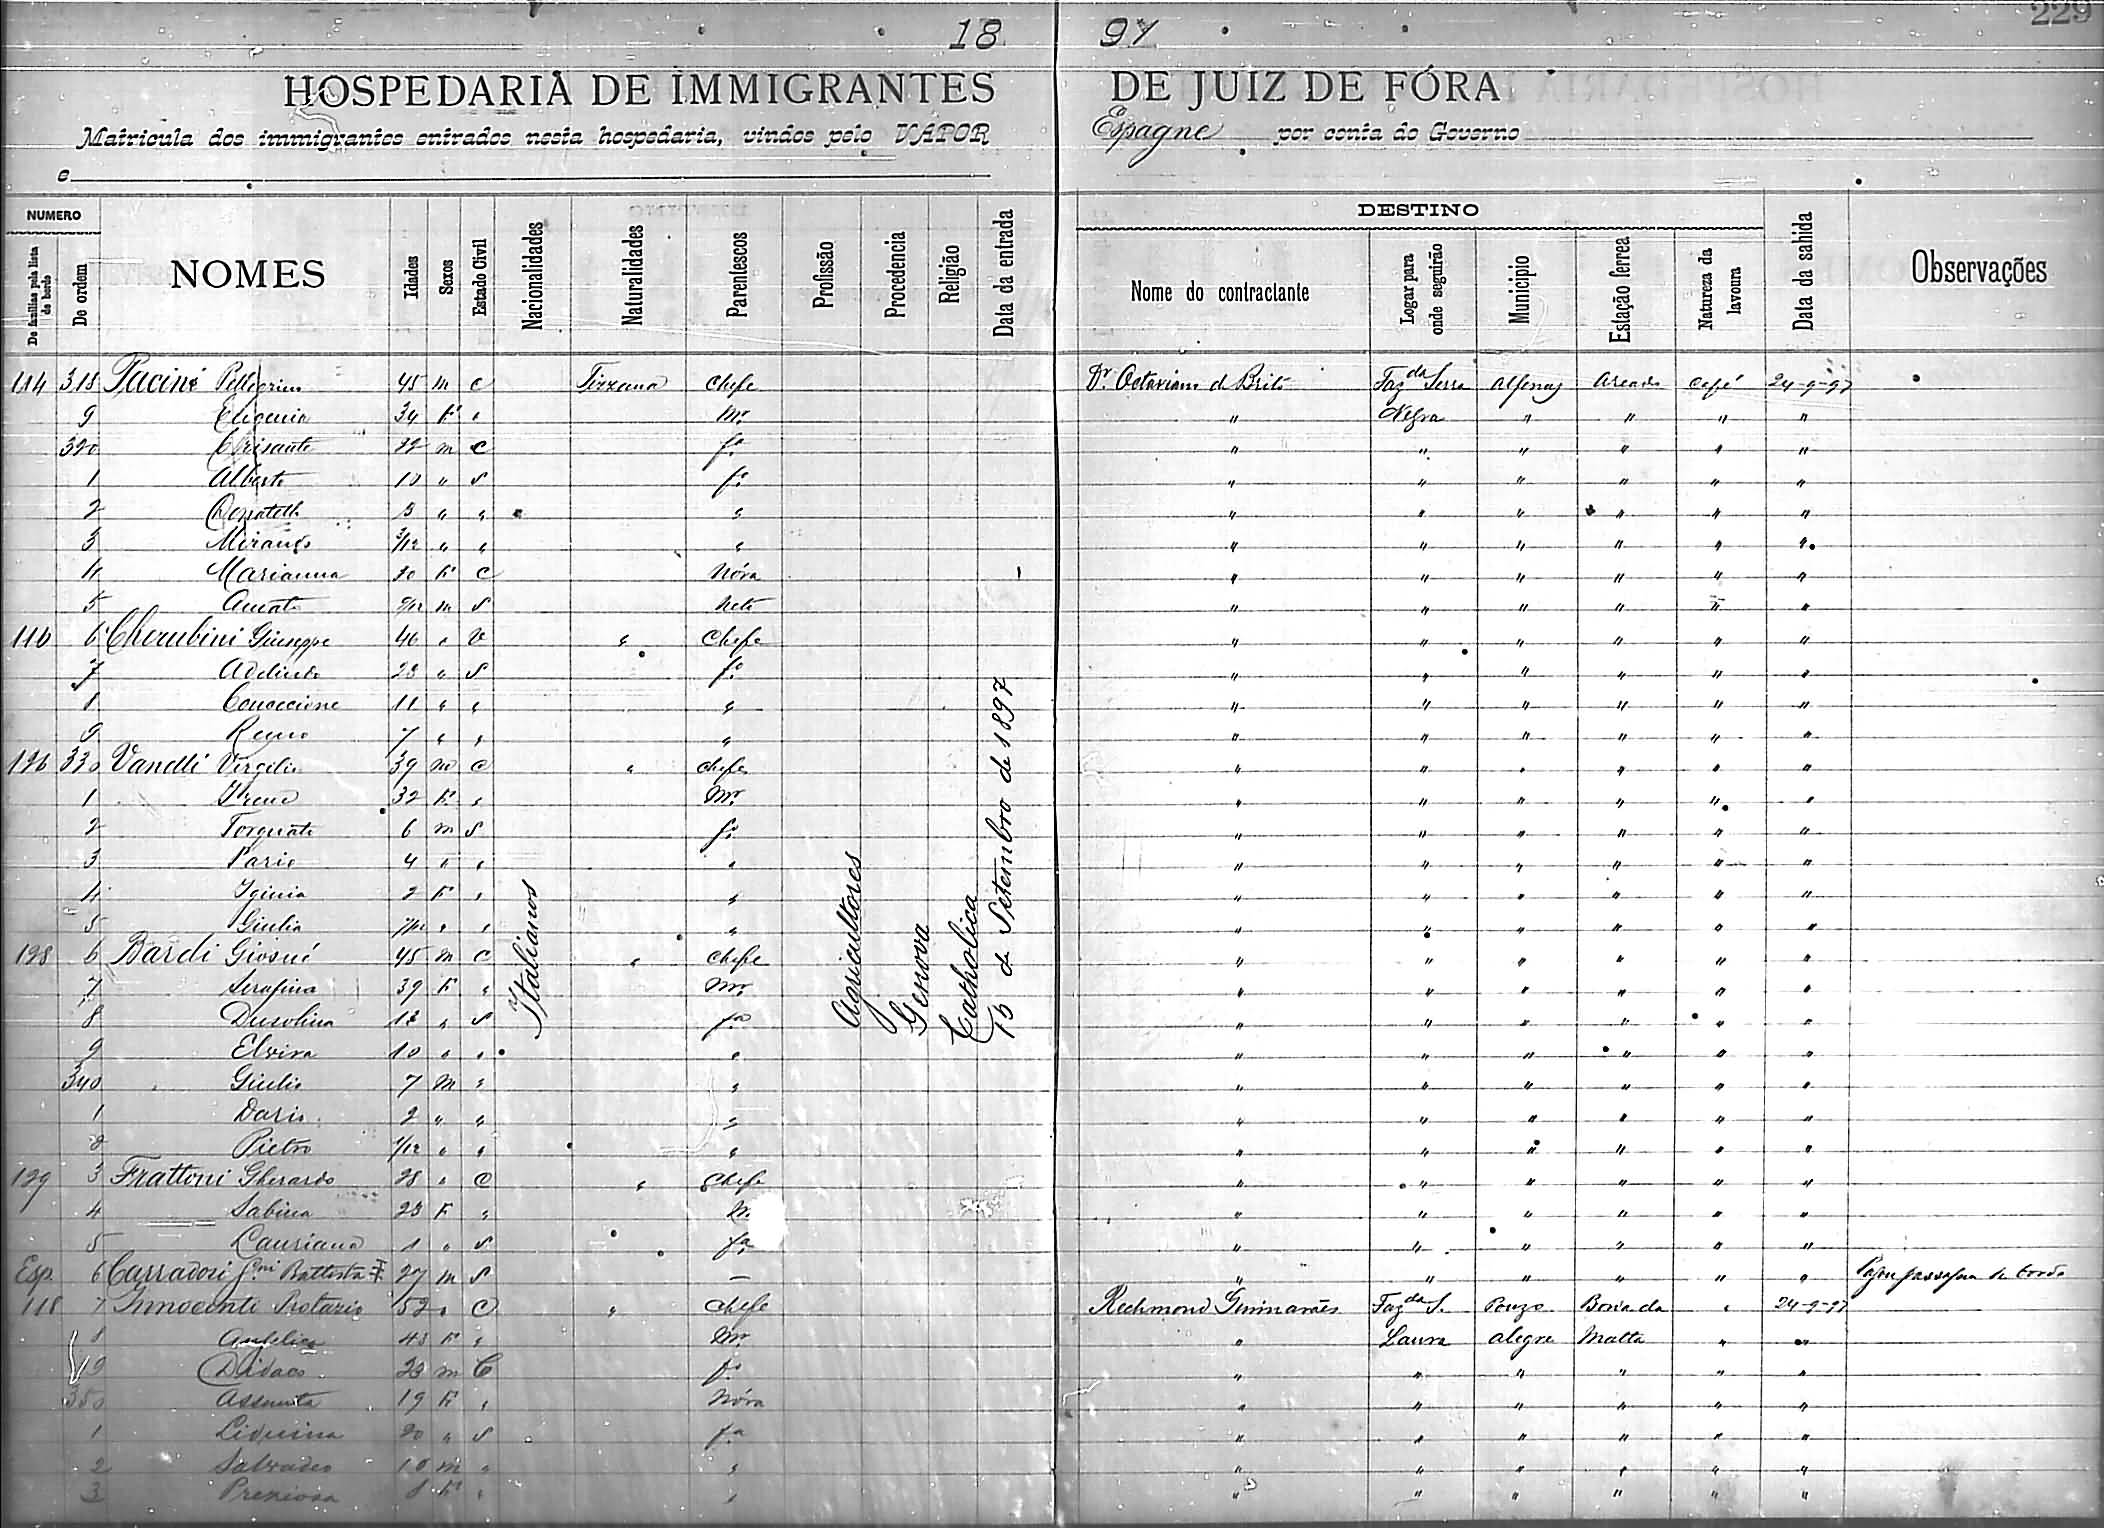 229
18 97
HOSPEDARIA DE IMMIGRANTES DE JUIZ DE FÓRA
Matricula dos immigrantes entrados nesta hospedaria, vindos pelo VAPOR Espagne por conta do Governo
e
NUMERO
De familias pela lista de bordo
De ordem
NOMES
Idades
Sexos
Estado Civil
Nacionalidades
Naturalidades
Parentescos
Profissão
Procedencia
Religião
Data da entrada
DESTINO
Nome do contractante
Logar para onde seguirão
Municipio
Estação ferrea
Natureza da lavoura
Data da sahida
Observações
114 318 Pacini Pellegrino 45 m c Tizzana Chefe Dr. Octaviano de Brito Fazda Serra Alfenas Areado Café 24-9-97
9 Eugenia 34 F " Mr. " Negra " " " "
320 Crisante 22 m C fo " " " " " "
1 Alberto 10 " S fo " " " " " "
2 Donatello 3 " " " " " " " " "
3 " " " " " " " " " "
4 Marianna 20 F C Nóra " " " " " "
5 Amato m S Neto " " " " " "
116 6 Cherubini Giuseppe 46 " V " Chefe " " " " " "
7 Adelindo 23 " S fo " " " " " "
8 Concecione 11 " " " " " " " " "
9 Remo 7 " " " " " " " " "
126 330 Vanelli Virgilio 39 m C " chefe " " " " " "
1 Irene 32 F " Mr. " " " " " "
2 Torquato 6 m S fo " " " " " "
3 Pario 4 " " " " " " " " "
4 Iginia 2 F " " " " " " " "
5 Giulia " " " " " " " " "
128 6 Bardi Giosué 45 m C " Chefe " " " " " "
7 Serafina 39 F " Mr. " " " " " "
8 Dusolina 12 " S fa " " " " " "
9 Elvira 10 " " " " " " " " "
340 Giulio 7 m " " " " " " " "
1 Dario 2 " " " " " " " " "
2 Pietro 1/12 " " " " " " " " "
129 3 Frattoni Gherardo 28 " C " Chefe " " " " " "
4 Sabina 23 F " M. " " " " " "
5 Lauriana 1 " S fa " " " " " "
Esp. 6 Carradori Battista 27 m S — " " " " " " Pagou passagem de bordo
118 7 Innocenti Protazio 52 " C " Chefe Rechmond Guimarães Fazda S. Pouzo Boria da " 24-9-97
8 Angelica 43 F " Mr. " Laura Alegre Matta " "
9 Didaco 23 m C fo " " " " " "
350 Assunta 19 F " Nóra " " " " " "
1 Liduina 20 " S fa " " " " " "
2 Salvadeo 10 m " " " " " " " "
3 Preziosa 8 F " " " " " " " "
Italianos
Agricultores
Genova
Catholica
15 de Setembro de 1897